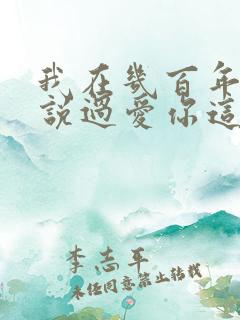 我在幾百年
說過愛你這
李志平
未經同意禁止轉載